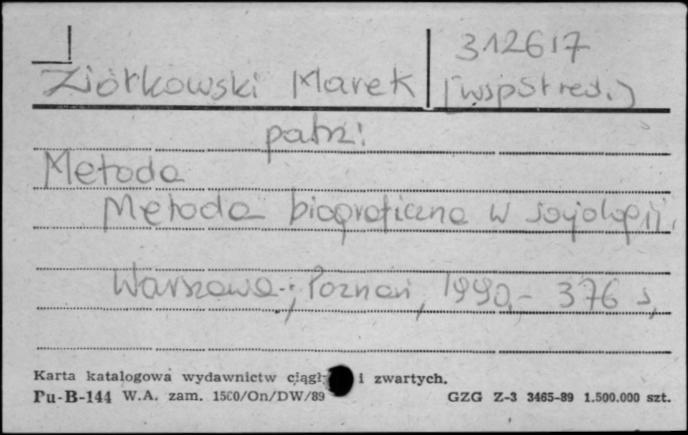 312617
Ziółkowski Marek [wspStred.)
patrz:
Metoda
Metoda biograficzna w socjologii.
Warszawa; Poznań, 1990.- 376 s,
Karta katalogowa wydawnictw ciągł i zwartych.
Pu-B-144 W.A. zam. 1500/On/DW/89 GZG Z-3 3465-89 1.500.000 szt.